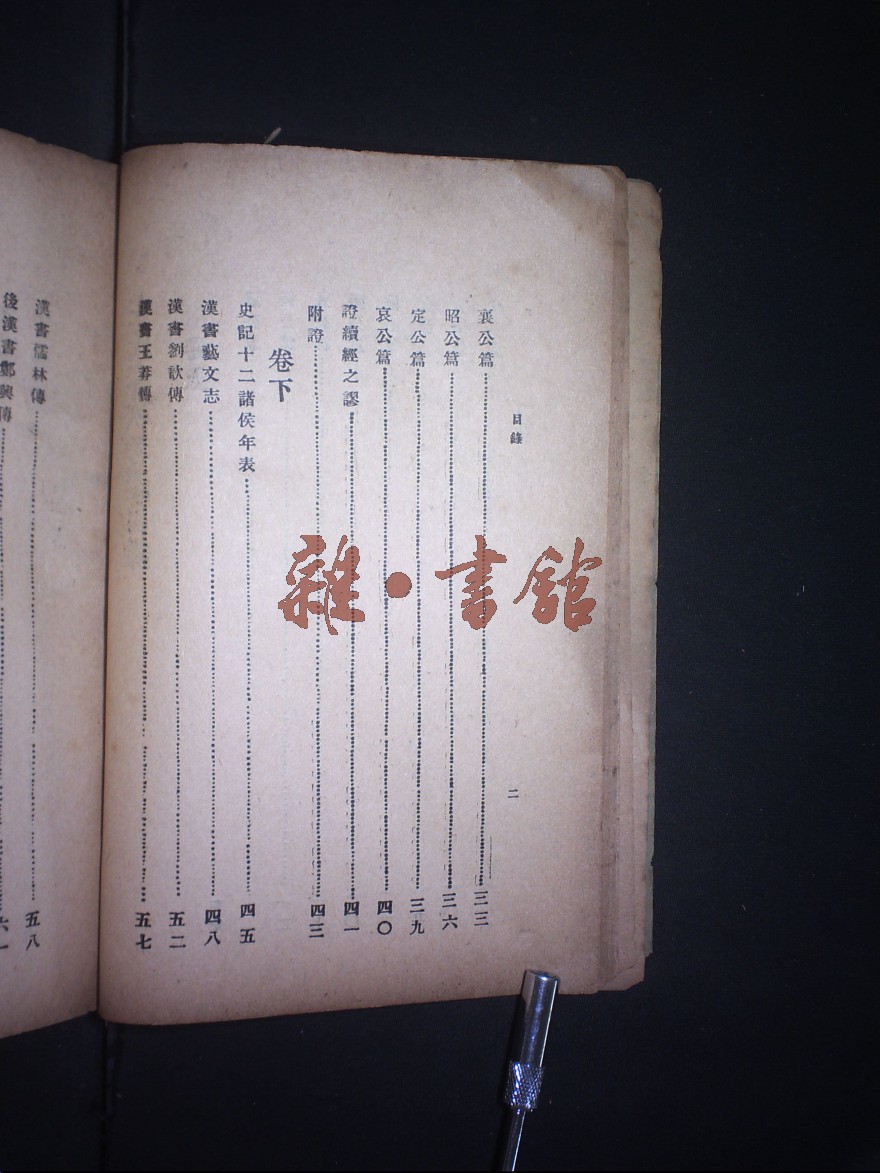 目錄
二
襄公篇……三三
昭公篇……三六
定公篇……三九
哀公篇……四〇
證續經之謬……四一
附證……四三
卷下
史記十二諸侯年表……四五
漢書藝文志……四八
漢書劉歆傳……五二
漢書王莽傳……五七
漢書儒林傳……五八
後漢書鄭興傳……六一
雜·書館